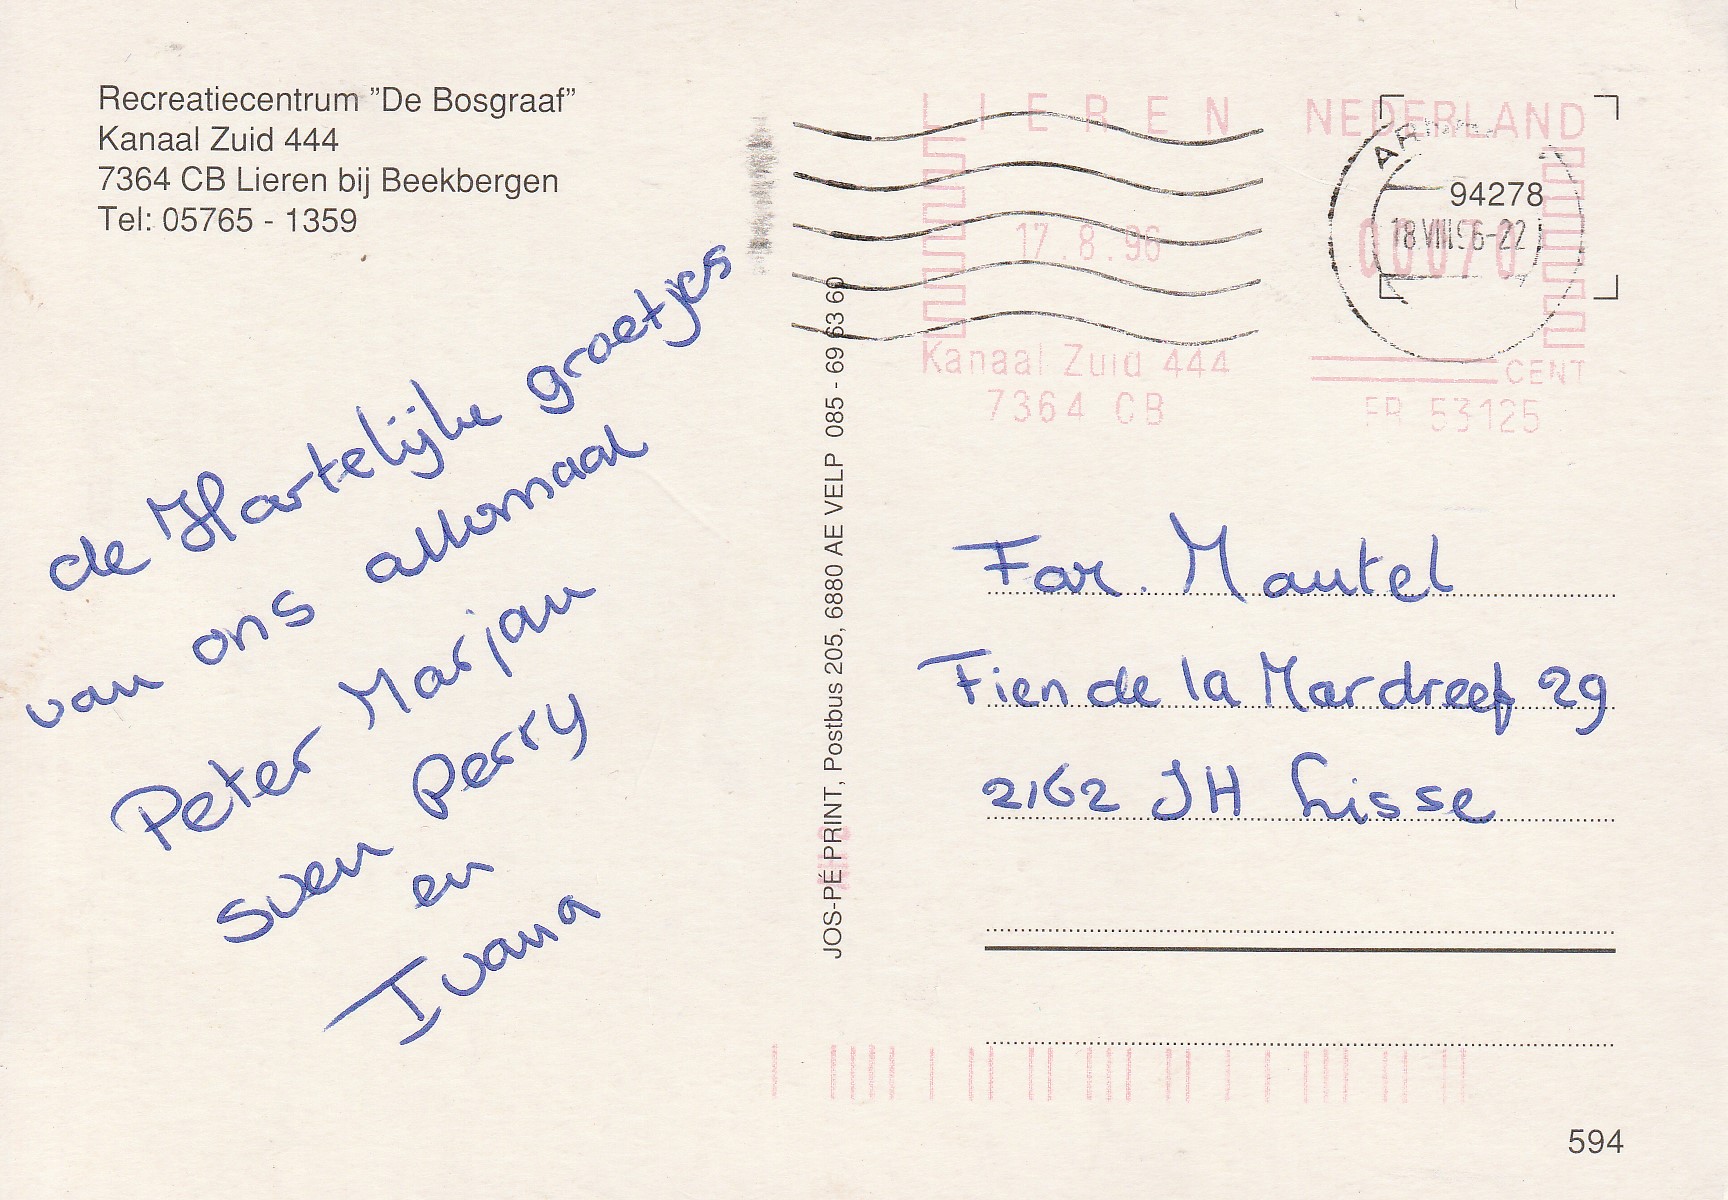 Recreatiecentrum "De Bosgraaf"
Kanaal Zuid 444
7364 CB Lieren bij Beekbergen
Tel: 05765 - 1359
de Hartelijke groetjes
van ons allemaal
Peter Marjan
Sven Perry
en
Ivana
JOS-PÉ PRINT, Postbus 205, 6880 AE VELP 085 - 69 63 60
LIEREN
17.8.96
Kanaal Zuid 444
7364 CB
NEDERLAND
94278
18 VIII 96-22
00070
CENT
FR 53125
Fam. Mantel
Fien de la Mardreef 29
2162 JH Lisse
594